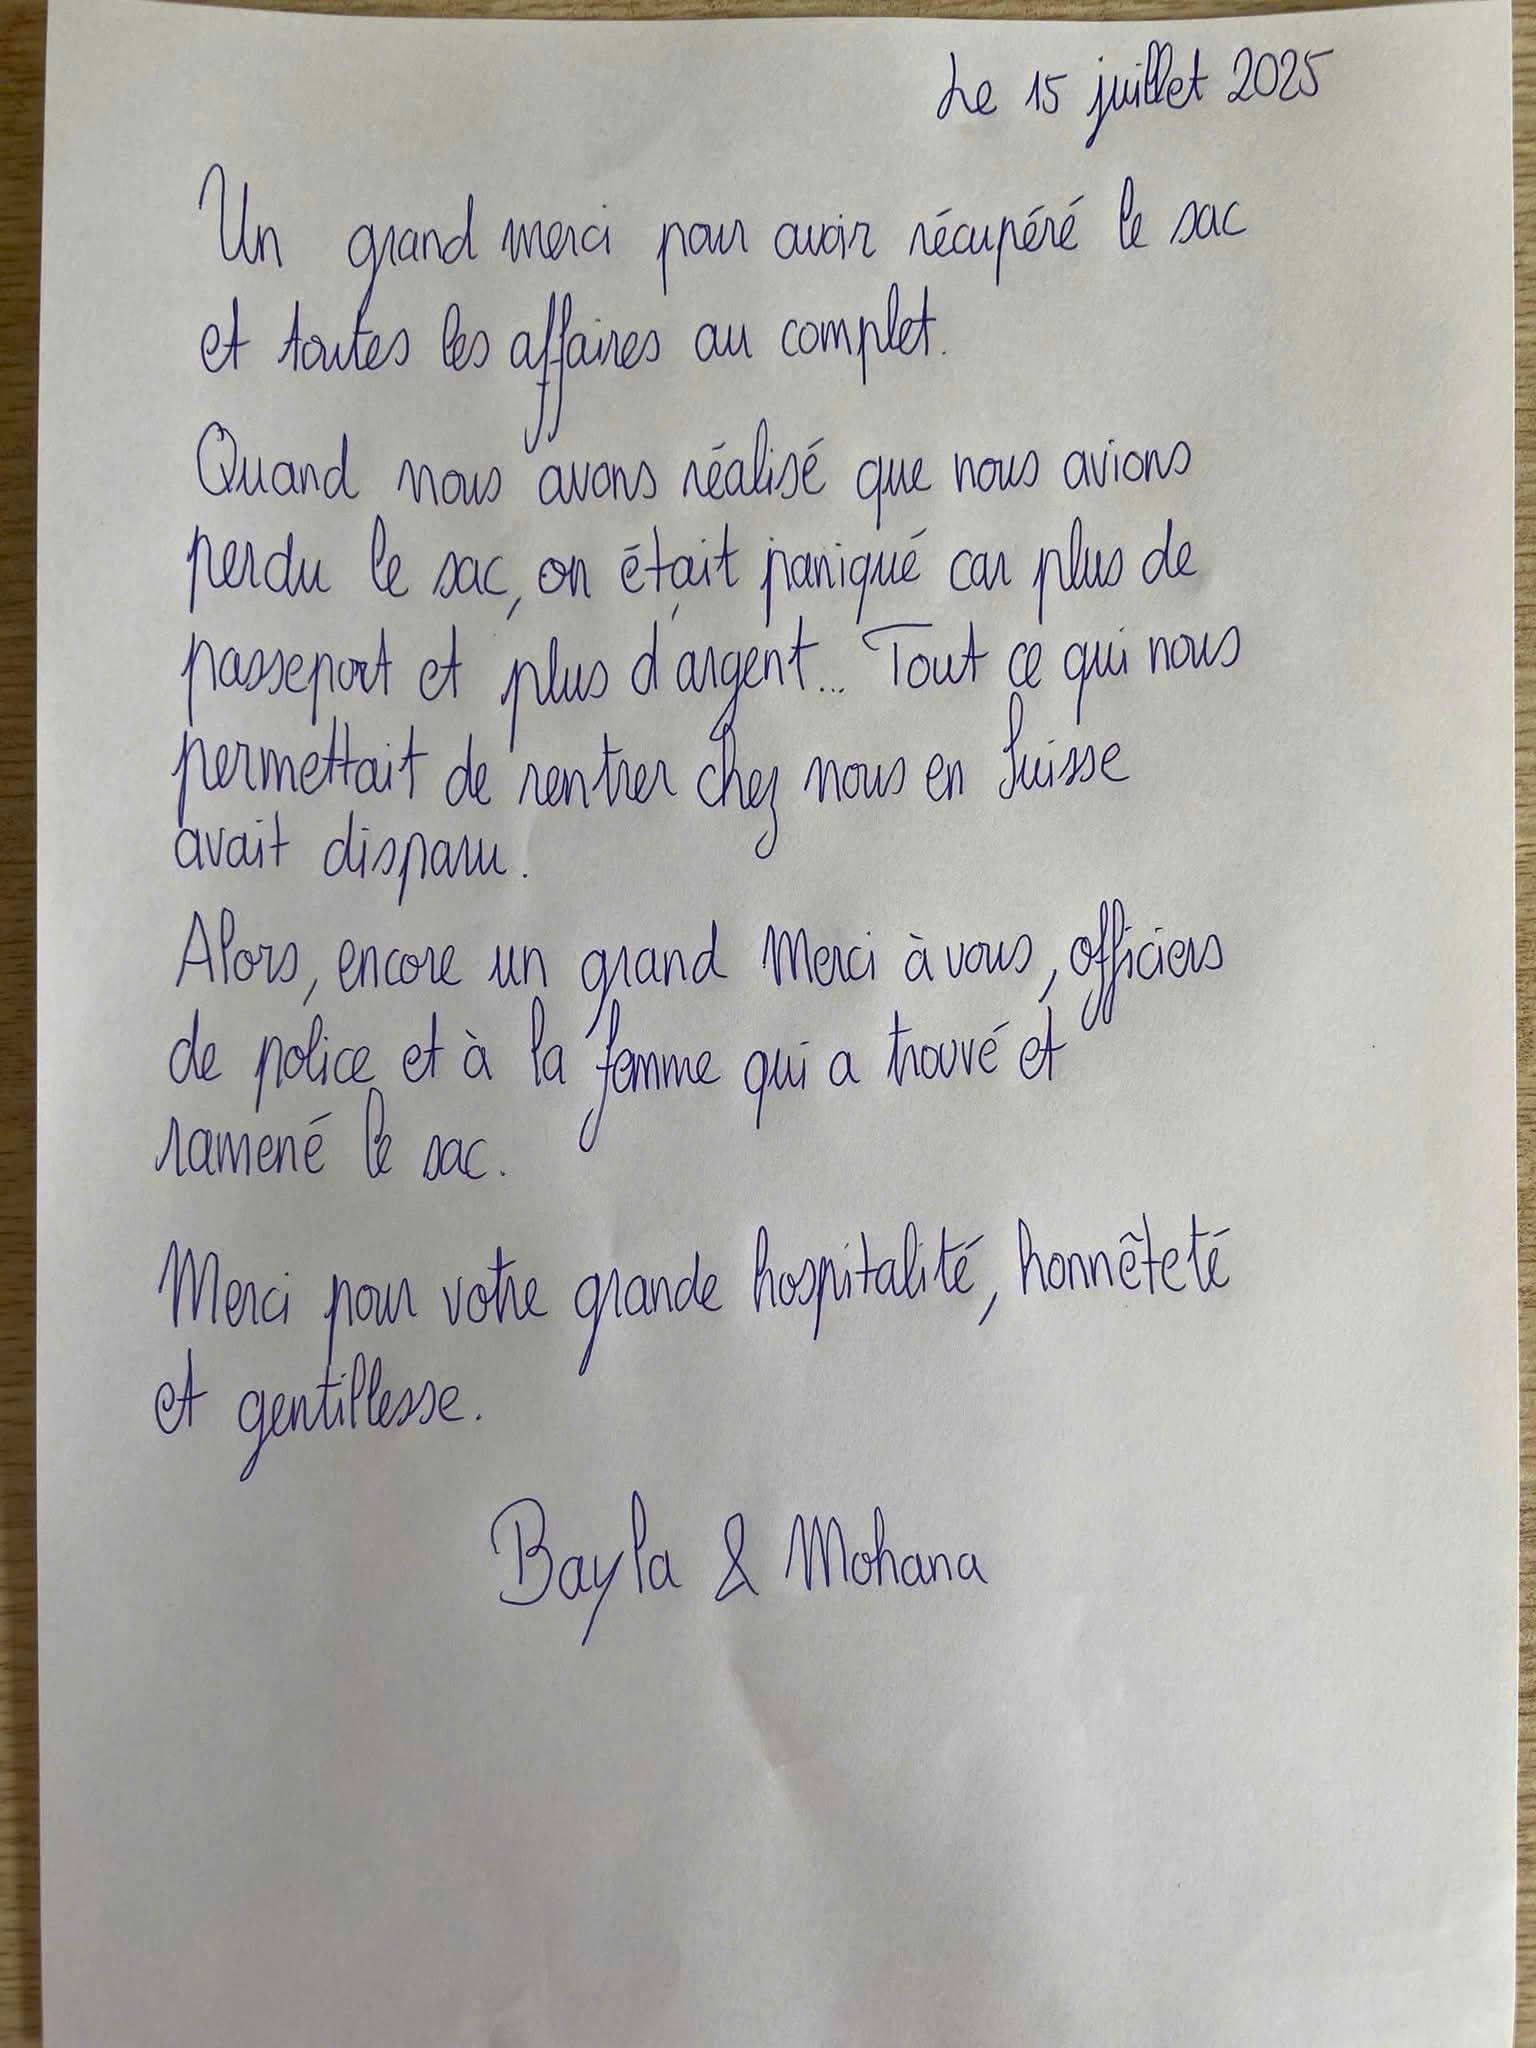 Le 15 juillet 2025
Un grand merci pour avoir récupéré le sac
et toutes les affaires au complet.
Quand nous avons réalisé que nous avions
perdu le sac, on était paniqué car plus de
passeport et plus d'argent... Tout ce qui nous
permettait de rentrer chez nous en Suisse
avait disparu.
Alors, encore un grand Merci à vous, officiers
de police et à la femme qui a trouvé et
ramené le sac.
Merci pour votre grande hospitalité, honnêteté
et gentillesse.
Bayla & Mohana